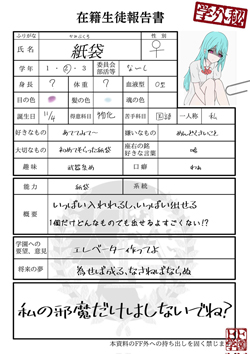 在籍生徒報告書
学外秘
ふりがな
氏名 紙袋
性別 ♀
学年 1・②・3
委員会部活等 なーし
身長 ?
体重 ?
血液型 O型
目の色
髪の色
魂の色
誕生日 11/4
得意科目
苦手科目 国語
一人称 私
好きなもの あててみて〜
嫌いなもの めんどくさいこと
大切なもの
座右の銘 好きな言葉
趣味
口癖
能力 紙袋
系統
概要
いっぱい入れれるし、いっぱい出せる
1個だけどんなものでも出せるよすごくない!?
学園への要望、意見 エレベーター作ってよ
将来の夢 為せば成る、なさねばならぬ
私の邪魔だけはしないでね?
本資料のFF外への持ち出しを固く禁じます